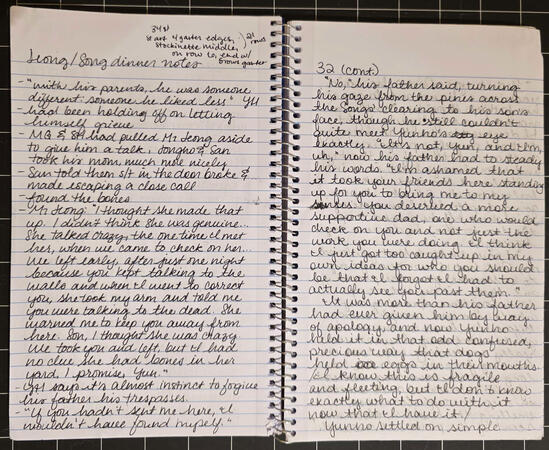 34 st
start 4 garter edges,
stockinette middles,
on row 10, end w/
5 rows garter
21 rows
Jeong/Song dinner notes
- "with his parents, he was someone
different, someone he liked less" YH
- had been holding off on letting
himself grieve
- MG & SH had pulled Mr Jeong aside
to give him a talk, Jongho & San
took his mom, much more nicely
- San told them s/t in the den broke &
made escaping a close call
- found the bones
- Mr Jeong: "I thought she made that
up. I didn't think she was genuine...
She talked crazy, the one time I met
her, when we came to check on her...
We left early, after just one night
because you kept talking to the
walls and when I went to correct
you, she took my arm and told me
you were talking to the dead. She
warned me to keep you away from
here. Son, I thought she was crazy.
We took you and left, but I had
no clue she had bones in her
yard, I promise, Yun."
- YH says it's almost instinct to forgive
his father his trespasses.
- "If you hadn't sent me here, I
wouldn't have found myself."
32 (cont)
"No," his father said, turning
his gaze from the pines across
the Songs' clearing to his son's
face, though he still couldn't
quite meet Yunho's eye
exactly. "It's not, Yun, and I'm,
uh," now his father had to steady
his words. "I'm ashamed that
it took your friends here standing
up for you to bring me to my
senses. You deserved a more
supportive dad, one who would
check on you and not just the
work you were doing. I think
I just got too caught up in my
own ideas for who you should
be that I forgot I had to
actually see you past them."
It was more than his father
had ever given him by way
of apology, and now Yunho
held it in that odd confused,
precious way that dogs
held eggs in their mouths.
/I know this is fragile
and fleeting, but I don't know
exactly what to do with it
now that I have it./
Yunho settled on simple